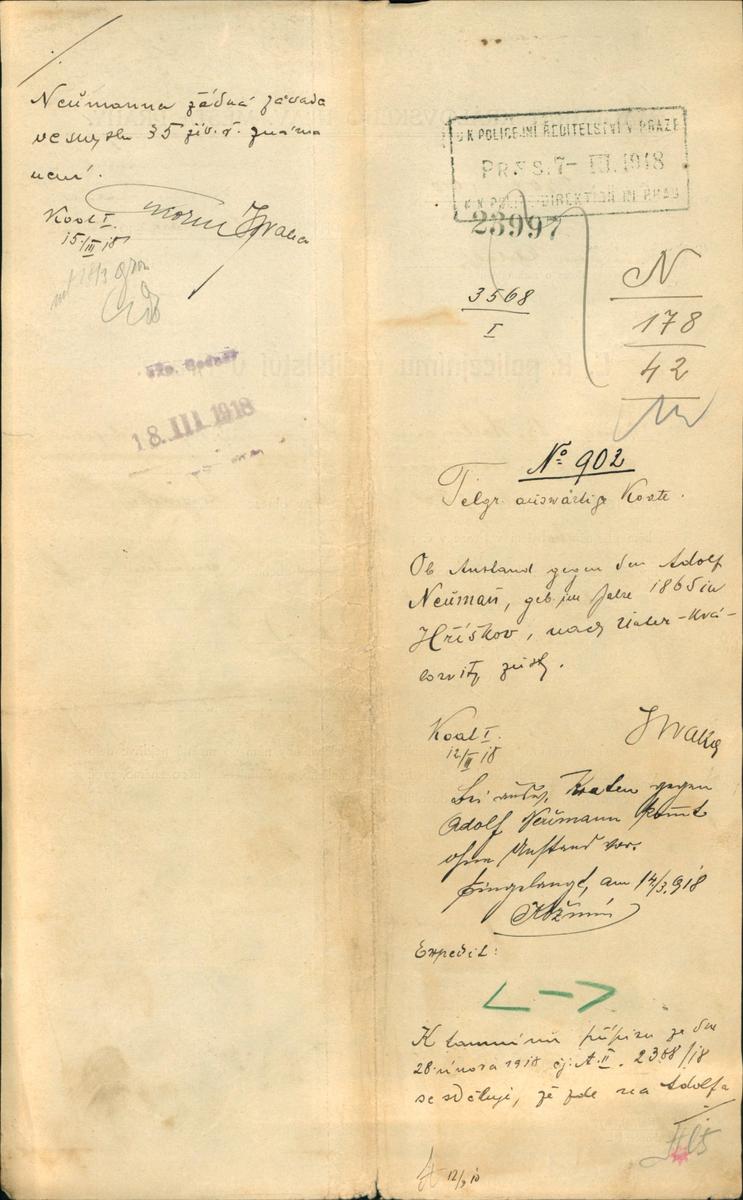 Neumanna žádná závada
ve smyslu § 5 živ. ř. známa
není.
Koal I.
15/III 18
18. III 1918
C K POLICEJNÍ ŘEDITELSTVÍ V PRAZE
PRÆS. 7- III. 1918
K. K. POLIZEI-DIREKTION IN PRAG
23997
3568
I
N
178
42
No 902
Telgr. auswärtige Koate.
Ob Anstand gegen den Adolf
Neuman̄, geb. im Jahre 1865 in
Hříškov, nach Unter-
zust.
Koal I.
12/III 18
Bei Kraten gegen
Adolf Neumann kom̄t
ohne Anstand vor.
Eingelangt, am 14/3. 918
Expedit:
<->
K tamnímu přípisu ze dne
28. února 1918 čj. A. II. 2388/18
se sděluje, že zde na Adolfa
12/3 18